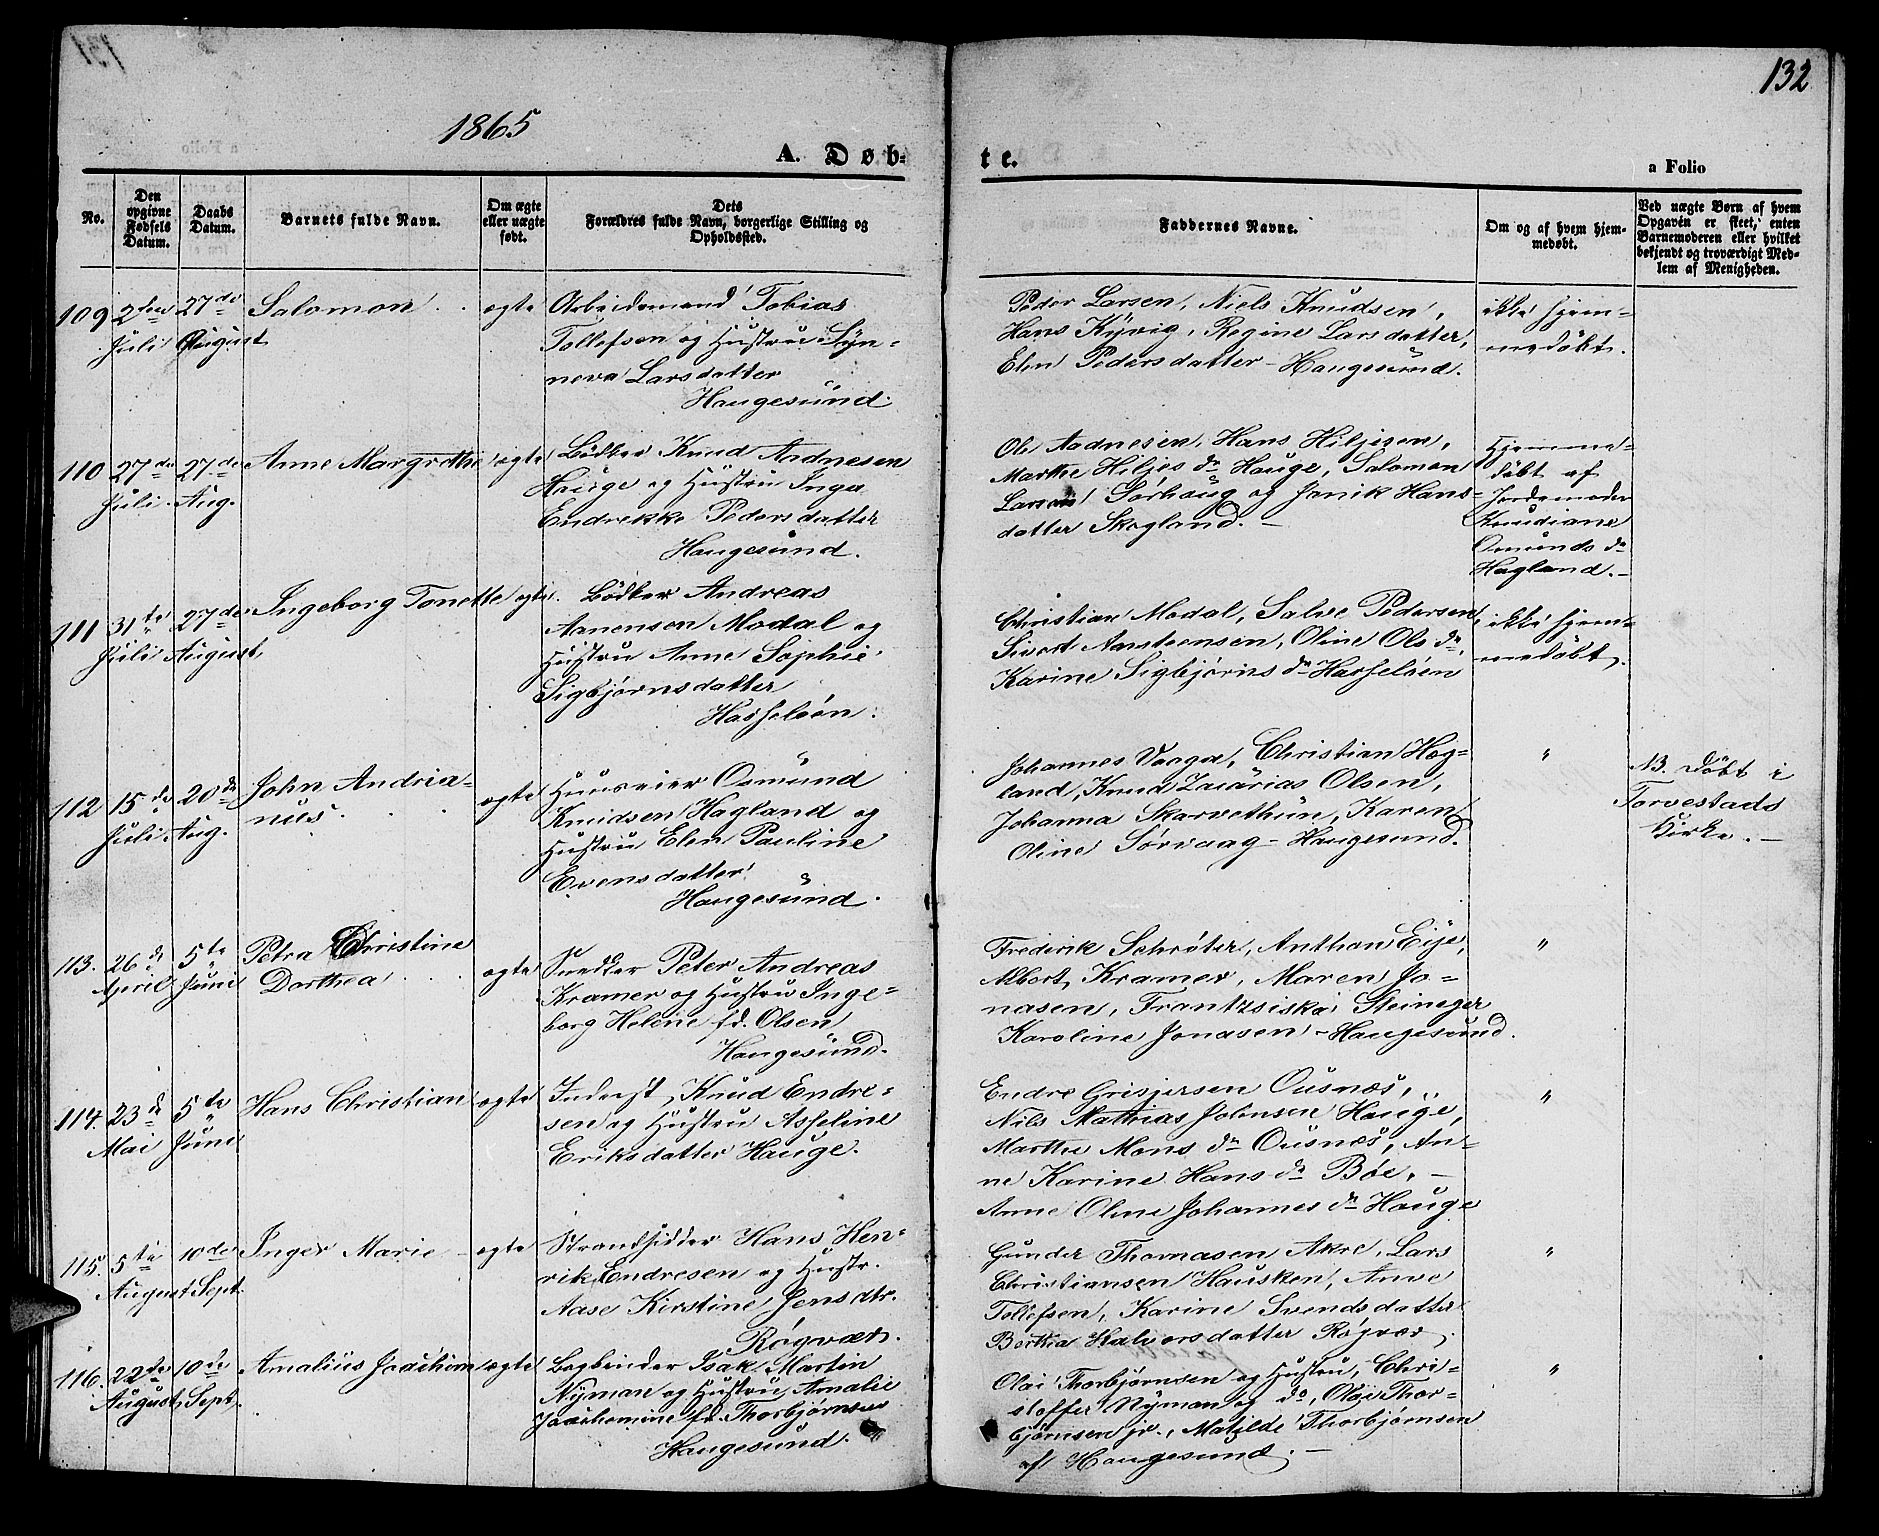 132
1865
A. Døb-
te.
a Folio
No.
Den opgivne Fødsels Datum.
Daabs Datum.
Barnets fulde Navn.
Om ægte eller uægte født.
Dets
Forældres fulde Navn, borgerlige Stilling og
Opholdssted.
Faddernes Navne.
Om og af hvem hjem-
medøbt.
Ved uægte Børn af hvem
Opgaven er skeet, enten
Barnemoderen eller hvilket
bekjendt og troværdigt Med-
lem af Menigheden.
109 2den Juli 27de August Salomon ægte
Arbeidsmand Tobias
Tollefsen og Hustru Syn-
neva Larsdatter
Haugesund.
Peder Larsen, Niels Knudsen,
Hans Kyvig, Regine Larsdatter,
Elen Pedersdatter - Haugesund.
ikke hjem-
medøbt.
110 27de Juli 27de Aug. Anne Margrethe ægte
Bødker Knud Aadnesen
Hauge og Hustru Inger
Endrekke Pedersdatter
Haugesund.
Ole Aadnesen, Hans Hiljesen,
Marthe Hiljes dr Hauge, Salomon
Larsen Sørhaug og Janik Hans-
datter Skogland. -
Hjemme-
døbt af
Jordemoder
Knudiane
Osmunds dr
Hagland. -
111 31te Juli 27de August, Ingeborg Tonette ægte.
Bødker Andreas
Aanensen Modal og
Hustru Anne Sophie
Sigbjørnsdatter
Hasseløen.
Christian Modal, Salve Pedersen,
Sivert Aanstensen, Oline Ols dr,
Karine Sigbjørns dr Hasseløen
ikke hjem-
medøbt.
112 15de Juli 20de Aug. John Andria-
nus. ægte
Huuseier Osmund
Knudsen Hagland og
Hustru Elen Pauline
Evensdatter
Haugesund.
Johannes Vaage, Christian Hog-
land, Knud Zacarias Olsen,
Johanna Skarvethun, Karen
Oline Sørvaag - Haugesund.
"
NB. døbt i
Torvestads
Kirke. -
113. 26de April 5te Juni Petra Christine
Dorthea ægte
Snedker Peter Andreas
Kramer og Hustru Inge-
borg Helene fd. Olsen
Haugesund.
Frederik Schrøter, Anthon Eije,
Albert Kramer, Maren Jo-
nasen, Frantzsiska Steineger
Karoline Jonasen - Haugesund.
"
114. 23de Mai 5te Juni Hans Christian ægte
Inderst, Knud Endre-
sen og Hustru Asseline
Eriksdatter Hauge.
Endre Grisjersen Ousnæs,
Nils Mathias Johnsen Hauge,
Marthe Mons dr Ousnæs, An-
ne Karine Hans dr Bøe, -
Anne Oline Johannes dr Hauge
"
115. 5te August 10de Sept. Inger Marie ægte
Strandsidder Hans Hen-
rik Endresen og Hustr.
Aase Kirstine Jensdtr.
Røgvær.
Gunder Thomasen Akre, Lars
Christiansen Hausken, Anne
Tollefsen, Karine Svendsdatter
Berthe Halvorsdatter Røgvær.
"
116. 22de August 10de Sept. Amalius Joachim ægte
Bogbinder Isak Martin
Nyman og Hustru Amalie
Joachomine fd. Thorbjørnsen
Haugesund.
Olai Thorbjørnsen og Hustru, Chri-
stoffer Nyman og do, Olai Thor-
bjørnsen jr., Matilde Thorbjørnsen
af Haugesund. -
"